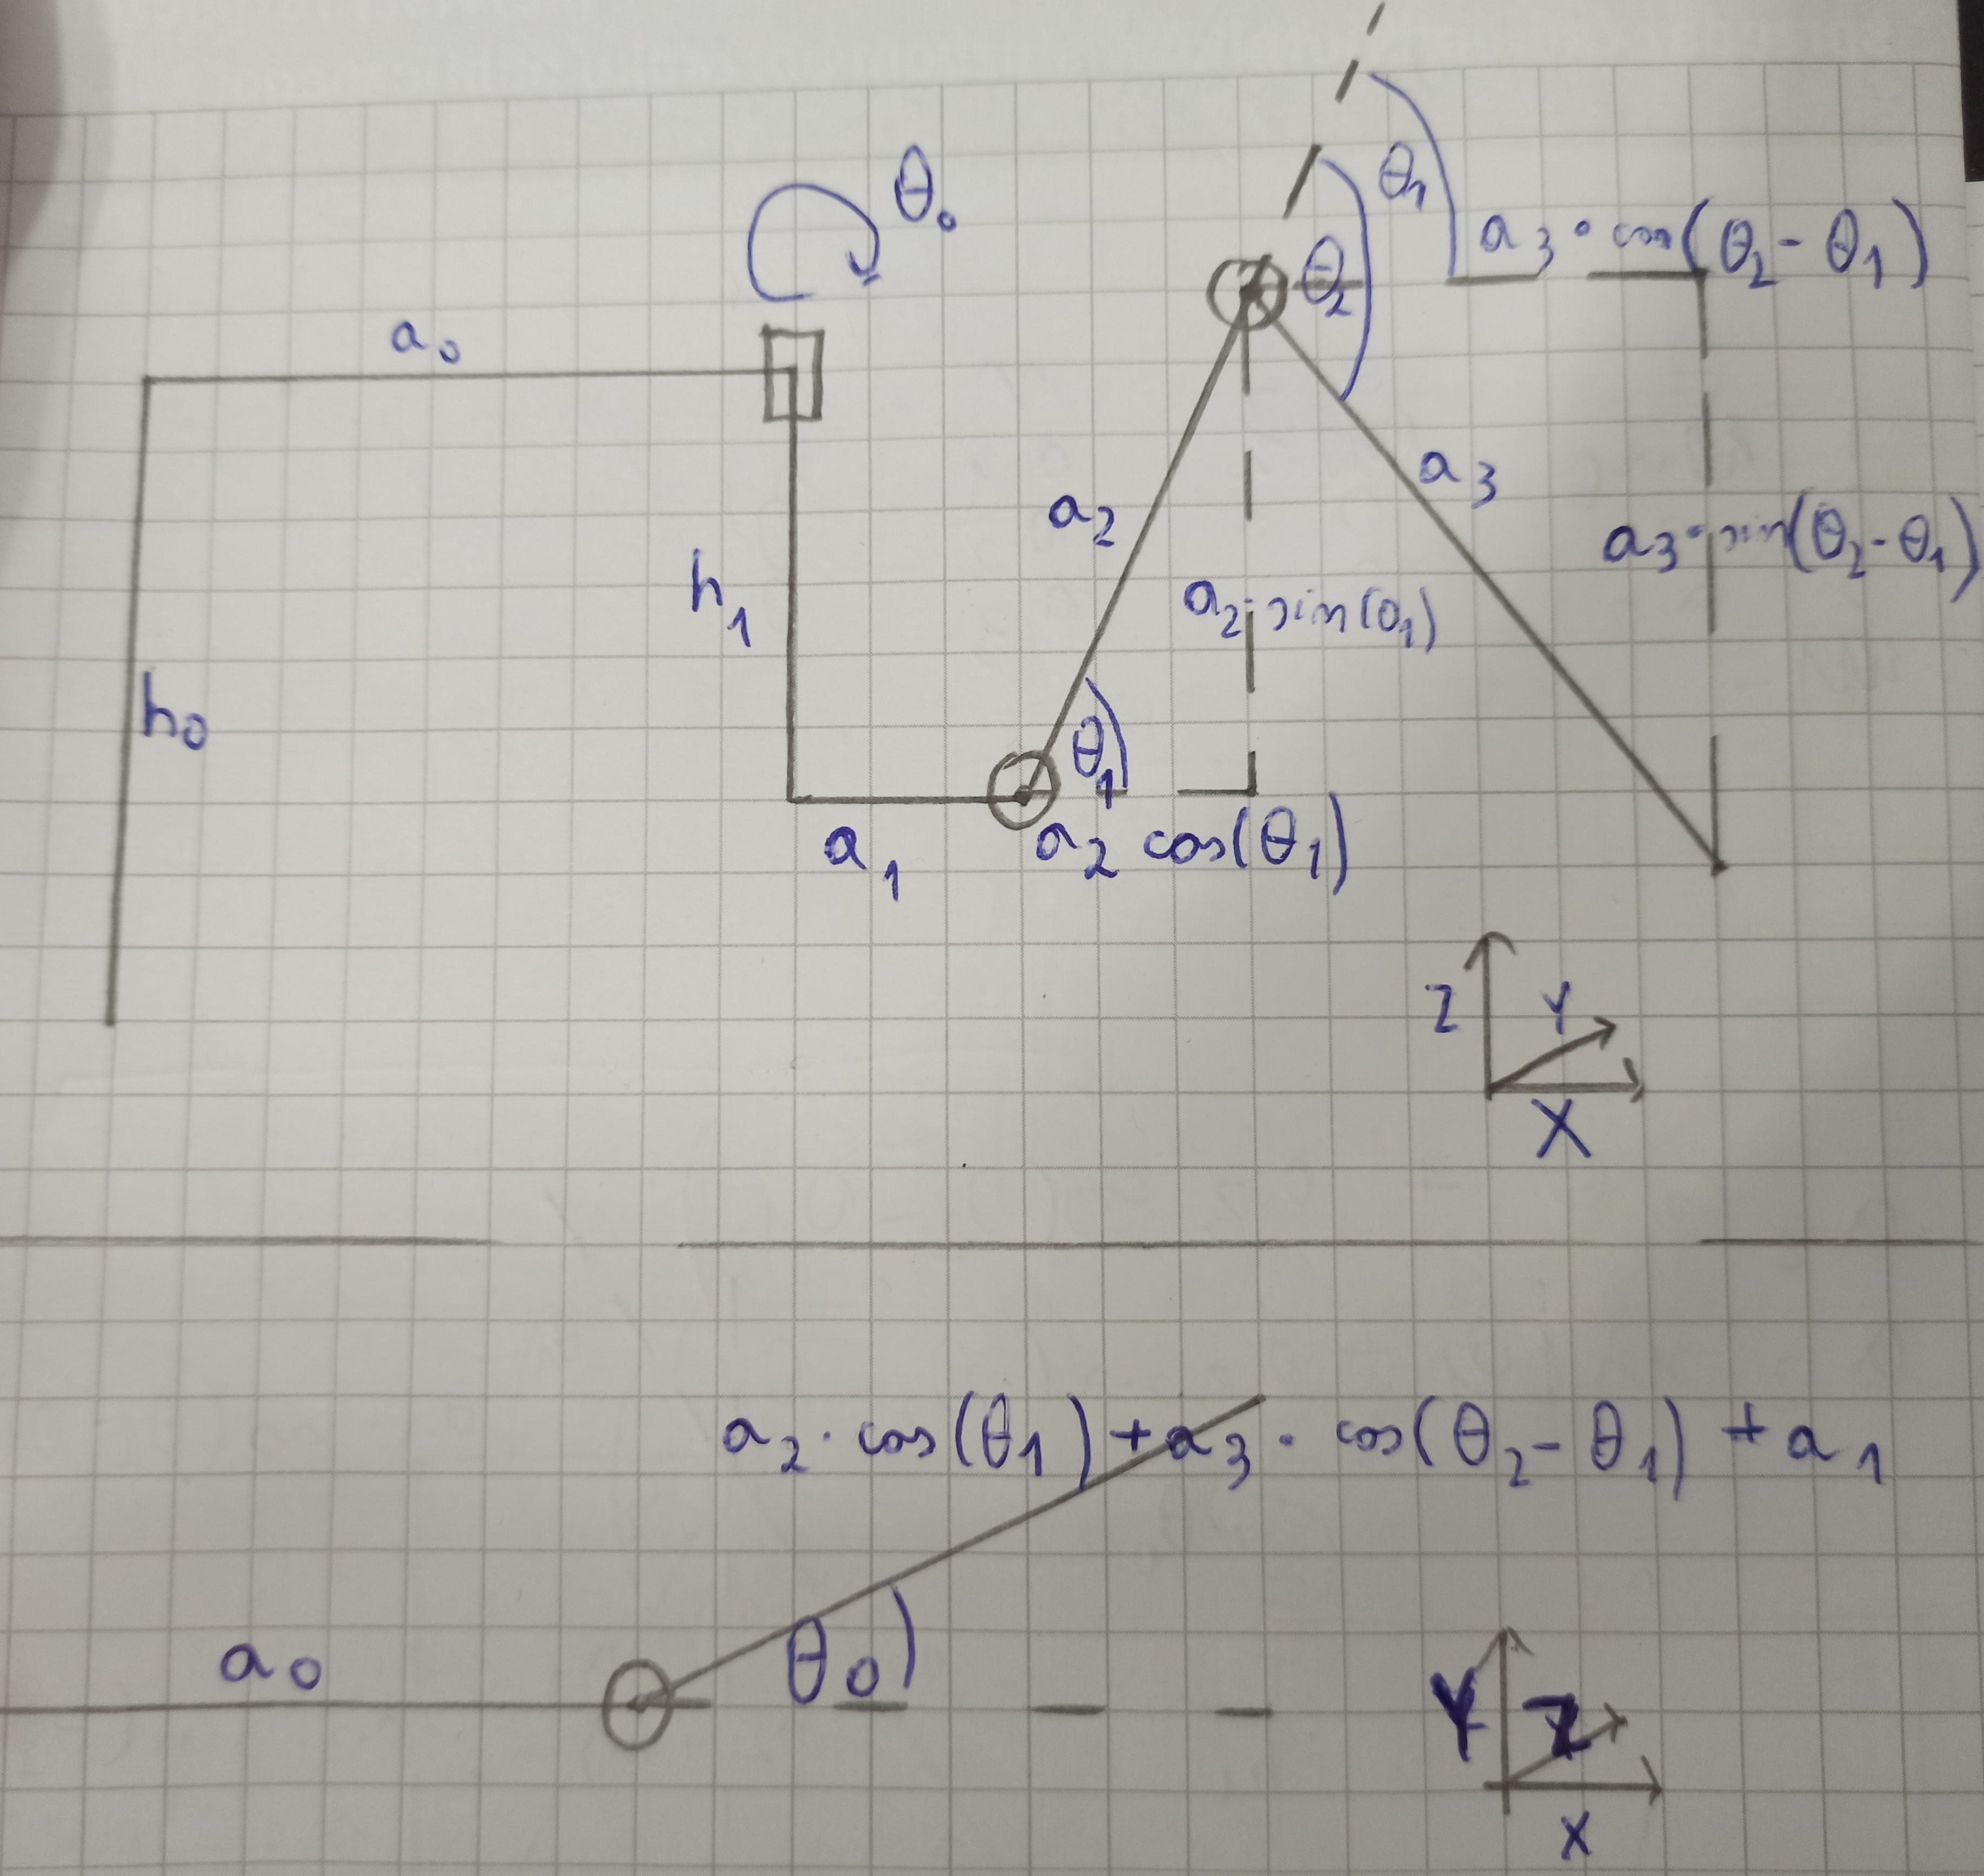 θ₁
θ₀
a₃ · cos(θ₂ - θ₁)
θ₂
a₀
a₃
a₂
a₃ · sin(θ₂ - θ₁)
h₁
a₂ · sin(θ₁)
h₀
θ₁
a₁
a₂ cos(θ₁)
Z
Y
X
a₂ · cos(θ₁) + a₃ · cos(θ₂ - θ₁) + a₁
a₀
θ₀
Y
Z
X